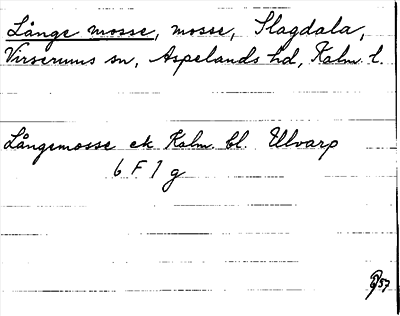 Långe mosse, mosse, Slagdala,
Virserums sn, Aspelands hd, Kalm. l.
Långemosse ek Kalm. bl. Ulvarp
6 F 1 g
57